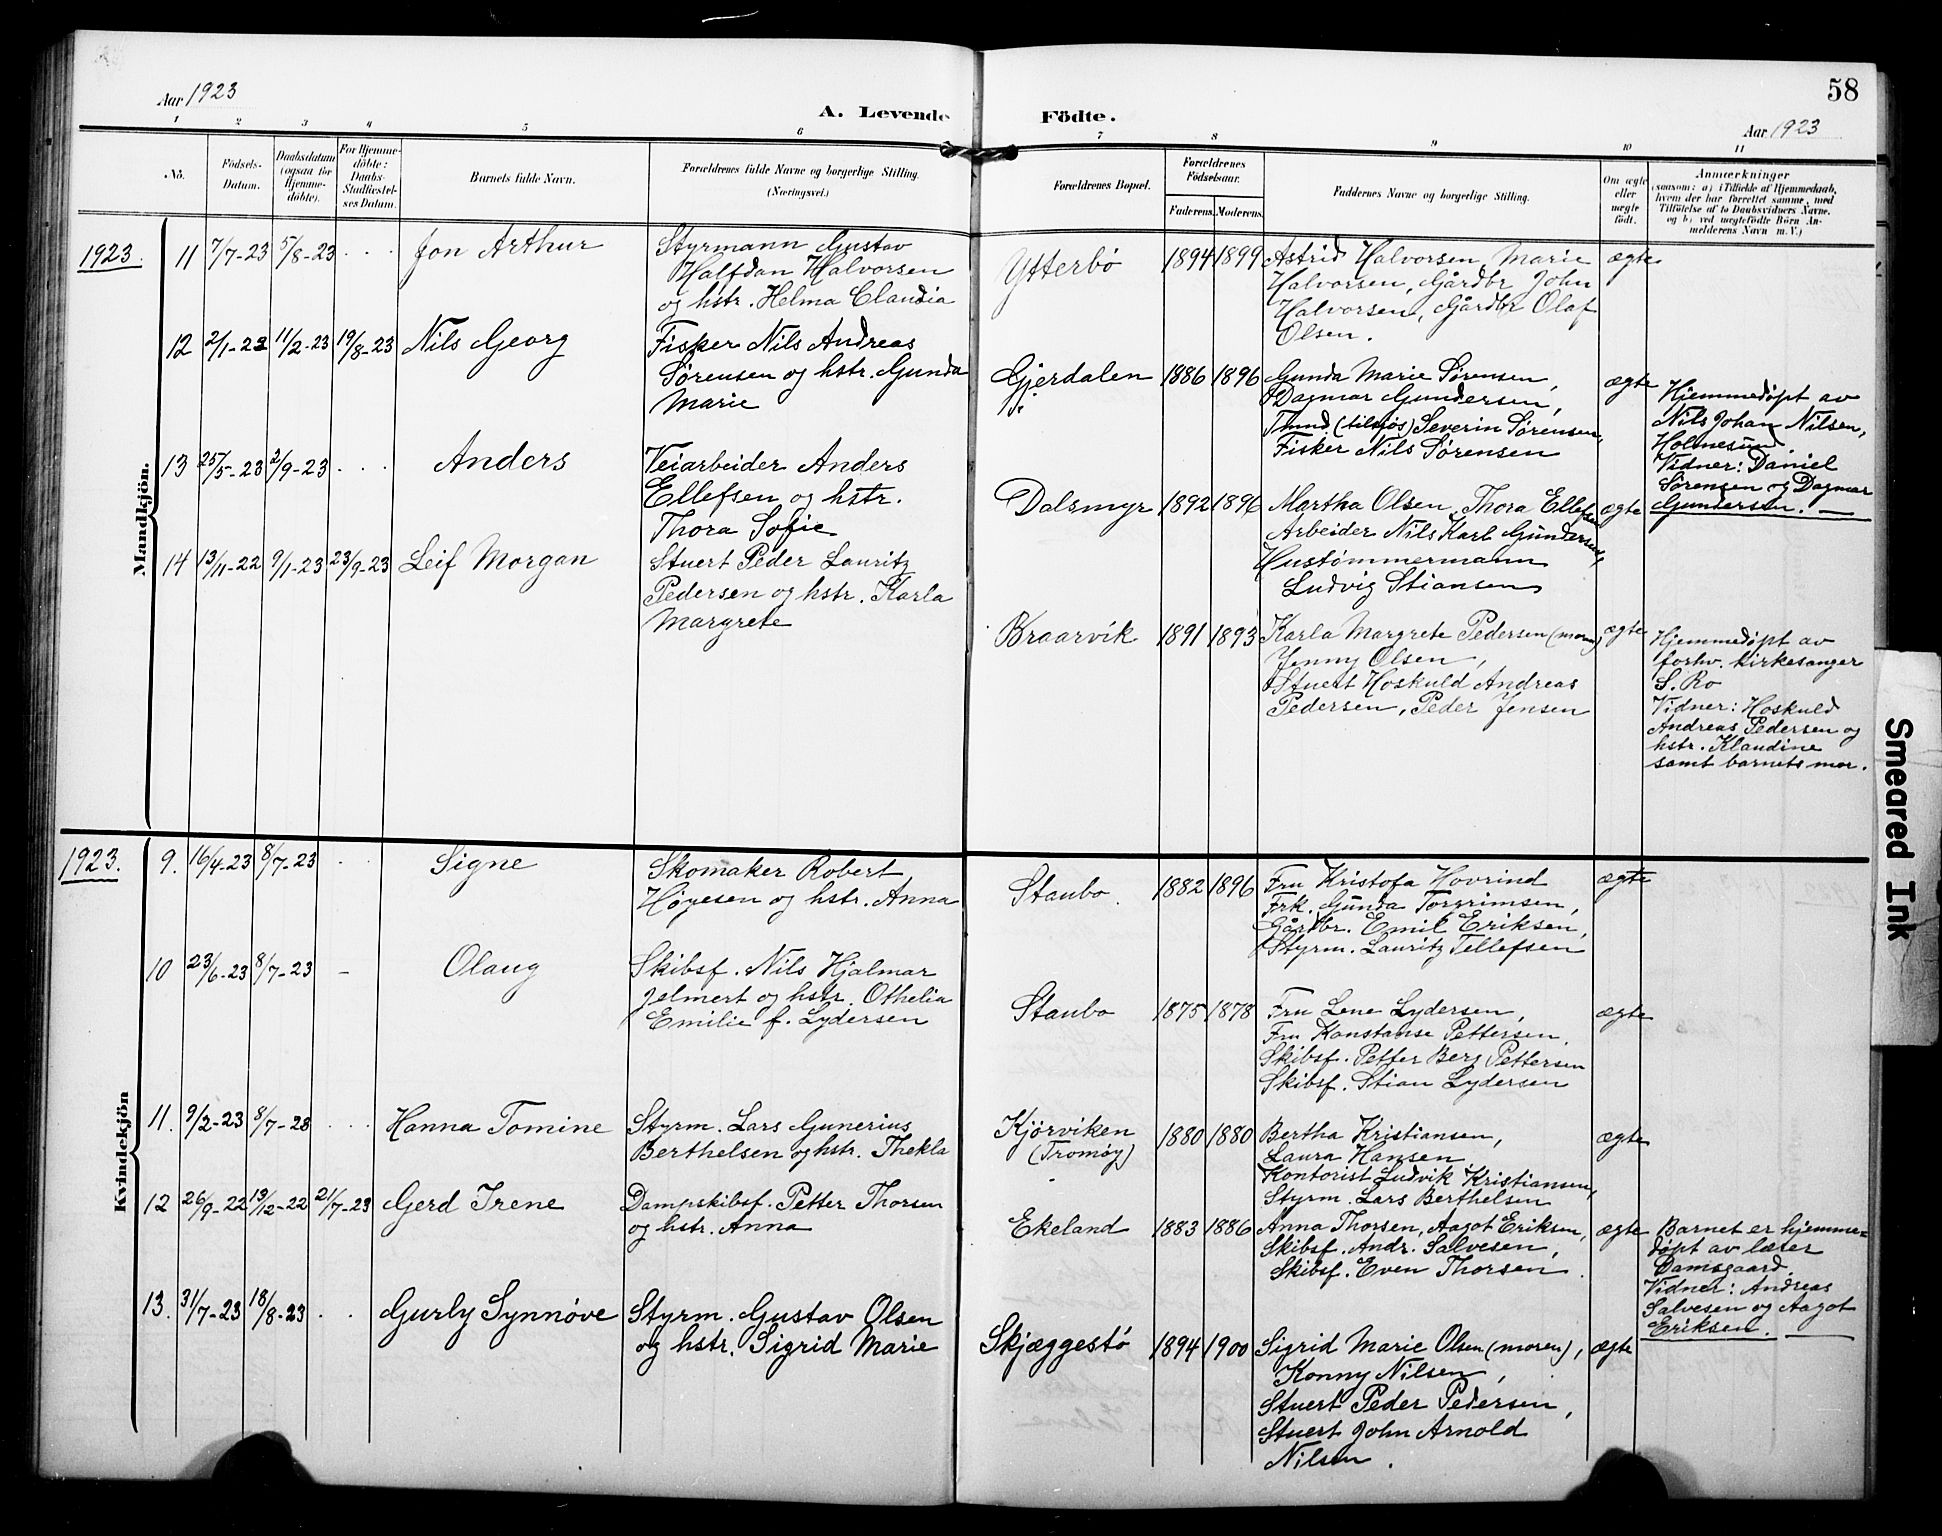 58
Aar 1923
A. Levende Födte.
Aar 1923
1 2 3 4 5 6 7 8 9 10 11
No.
Födsels-
Datum.
Daabsdatum
(ogsaa for
Hjemme-
döbte).
For Hjemme-
döbte:
Daabs-
Stadfæstel-
ses Datum.
Barnets fulde Navn.
Forældrenes fulde Navne og borgerlige Stilling.
(Næringsvei.)
Forældrenes Bopæl.
Forældrenes
Födselsaar.
Faderens. Moderens.
Faddernes Navne og borgerlige Stilling.
Om ægte
eller
uægte
födt.
Anmærkninger
(saasom: a) i Tilfælde af Hjemmedaab,
hvem der har forrettet samme, med
Tilföielse af to Daabsvidners Navne,
og b) ved uægtefödte Börn An-
melderens Navn m. V.)
Mandkjön.
1923.
11 7/7-23 5/8-23 . . . Jon Arthur
Styrmann Gustav
Halfdan Halvorsen
og hstr. Helma Claudia
Ytterbö 1894 1899
Astrid Halvorsen, Marie
Halvorsen, Gårdbr John
Halvorsen, Gårdbr Olaf
Olsen.
ægte
12 2/1-23 11/2-23 19/8-23 Nils Georg
Fisker Nils Andreas
Sørensen og hstr. Gunda
Marie
Gjerdalen 1886 1896
Gunda Marie Sørensen,
Dagmar Gundersen,
(tilsjøs) Severin Sørensen,
Fisker Nils Sørensen
ægte
Hjemmedöpt av
Nils Johan Nilsen,
Holmesund
Vidner: Daniel
Sørensen og Dagmar
Gundersen.
13 25/5-23 2/9-23 . . . Anders
Veiarbeider Anders
Ellefsen og hstr.
Thora Sofie
Dalsmyr 1892 1896
Martha Olsen, Thora Ellefsen
Arbeider Nils Karl Gundersen,
Hustømmermann
Ludvig Stiansen
ægte
14 13/11-22 9/1-23 23/9-23 Leif Morgan
Stuert Peder Lauritz
Pedersen og hstr. Karla
Margrete
Braarvik 1891 1893
Karla Margrete Pedersen (moren)
Jenny Olsen,
Stuert Hoskuld Andreas
Pedersen, Peder Jensen
ægte
Hjemmedöpt av
forhv. kirkesanger
S. Ro
Vidner: Hoskuld
Andreas Pedersen og
hstr. Klaudine
samt barnets mor.
Kvindekjön
1923.
9. 16/4-23 8/7-23 . . Signe
Skomaker Robert
Höyesen og hstr. Anna
Staubo. 1882 1896
Fru Kristofa Hovrind
Frk. Gunda Torgrimsen,
Gårdbr. Emil Eriksen,
Styrm. Lauritz Tellefsen
ægte
10 23/6-23 8/7-23 - Olaug
Skibsf. Nils Hjalmar
Jelmert og hstr. Othelia
Emilie f. Lydersen
Staubo 1875 1878
Fru Lene Lydersen,
Fru Konstanse Pettersen,
Skibsf. Petter Berg Pettersen
Skibsf. Stian Lydersen
ægte
11. 9/2-23 8/7-28 . . . Hanna Tomine
Styrm. Lars Gunerius
Berthelsen og hstr. Thekla
Kjørviken
(Tromøy)
1880 1880
Bertha Kristiansen,
Laura Hansen
Kontorist Ludvik Kristiansen,
Styrm. Lars Berthelsen
ægte
12 26/9-22 13/12-22 21/7-23 Gerd Irene
Dampskibsf. Petter Thorsen
og hstr. Anna
Ekeland 1883 1886
Anna Thorsen, Aagot Eriksen,
Skibsf. Andr. Salvesen,
Skibsf. Even Thorsen
ægte
Barnet er hjemme-
döpt av læter
Damsgaard.
Vidner: Andreas
Salvesen og Aagot
Eriksen.
13. 31/7-23 18/8-23 . . Gurly Synnöve
Styrm. Gustav Olsen
og hstr. Sigrid Marie
Skjæggestö 1894 1900
Sigrid Marie Olsen (moren),
Konny Nilsen,
Stuert Peder Pedersen,
Stuert John Arnold
Nilsen.
ægte
Smeared Ink